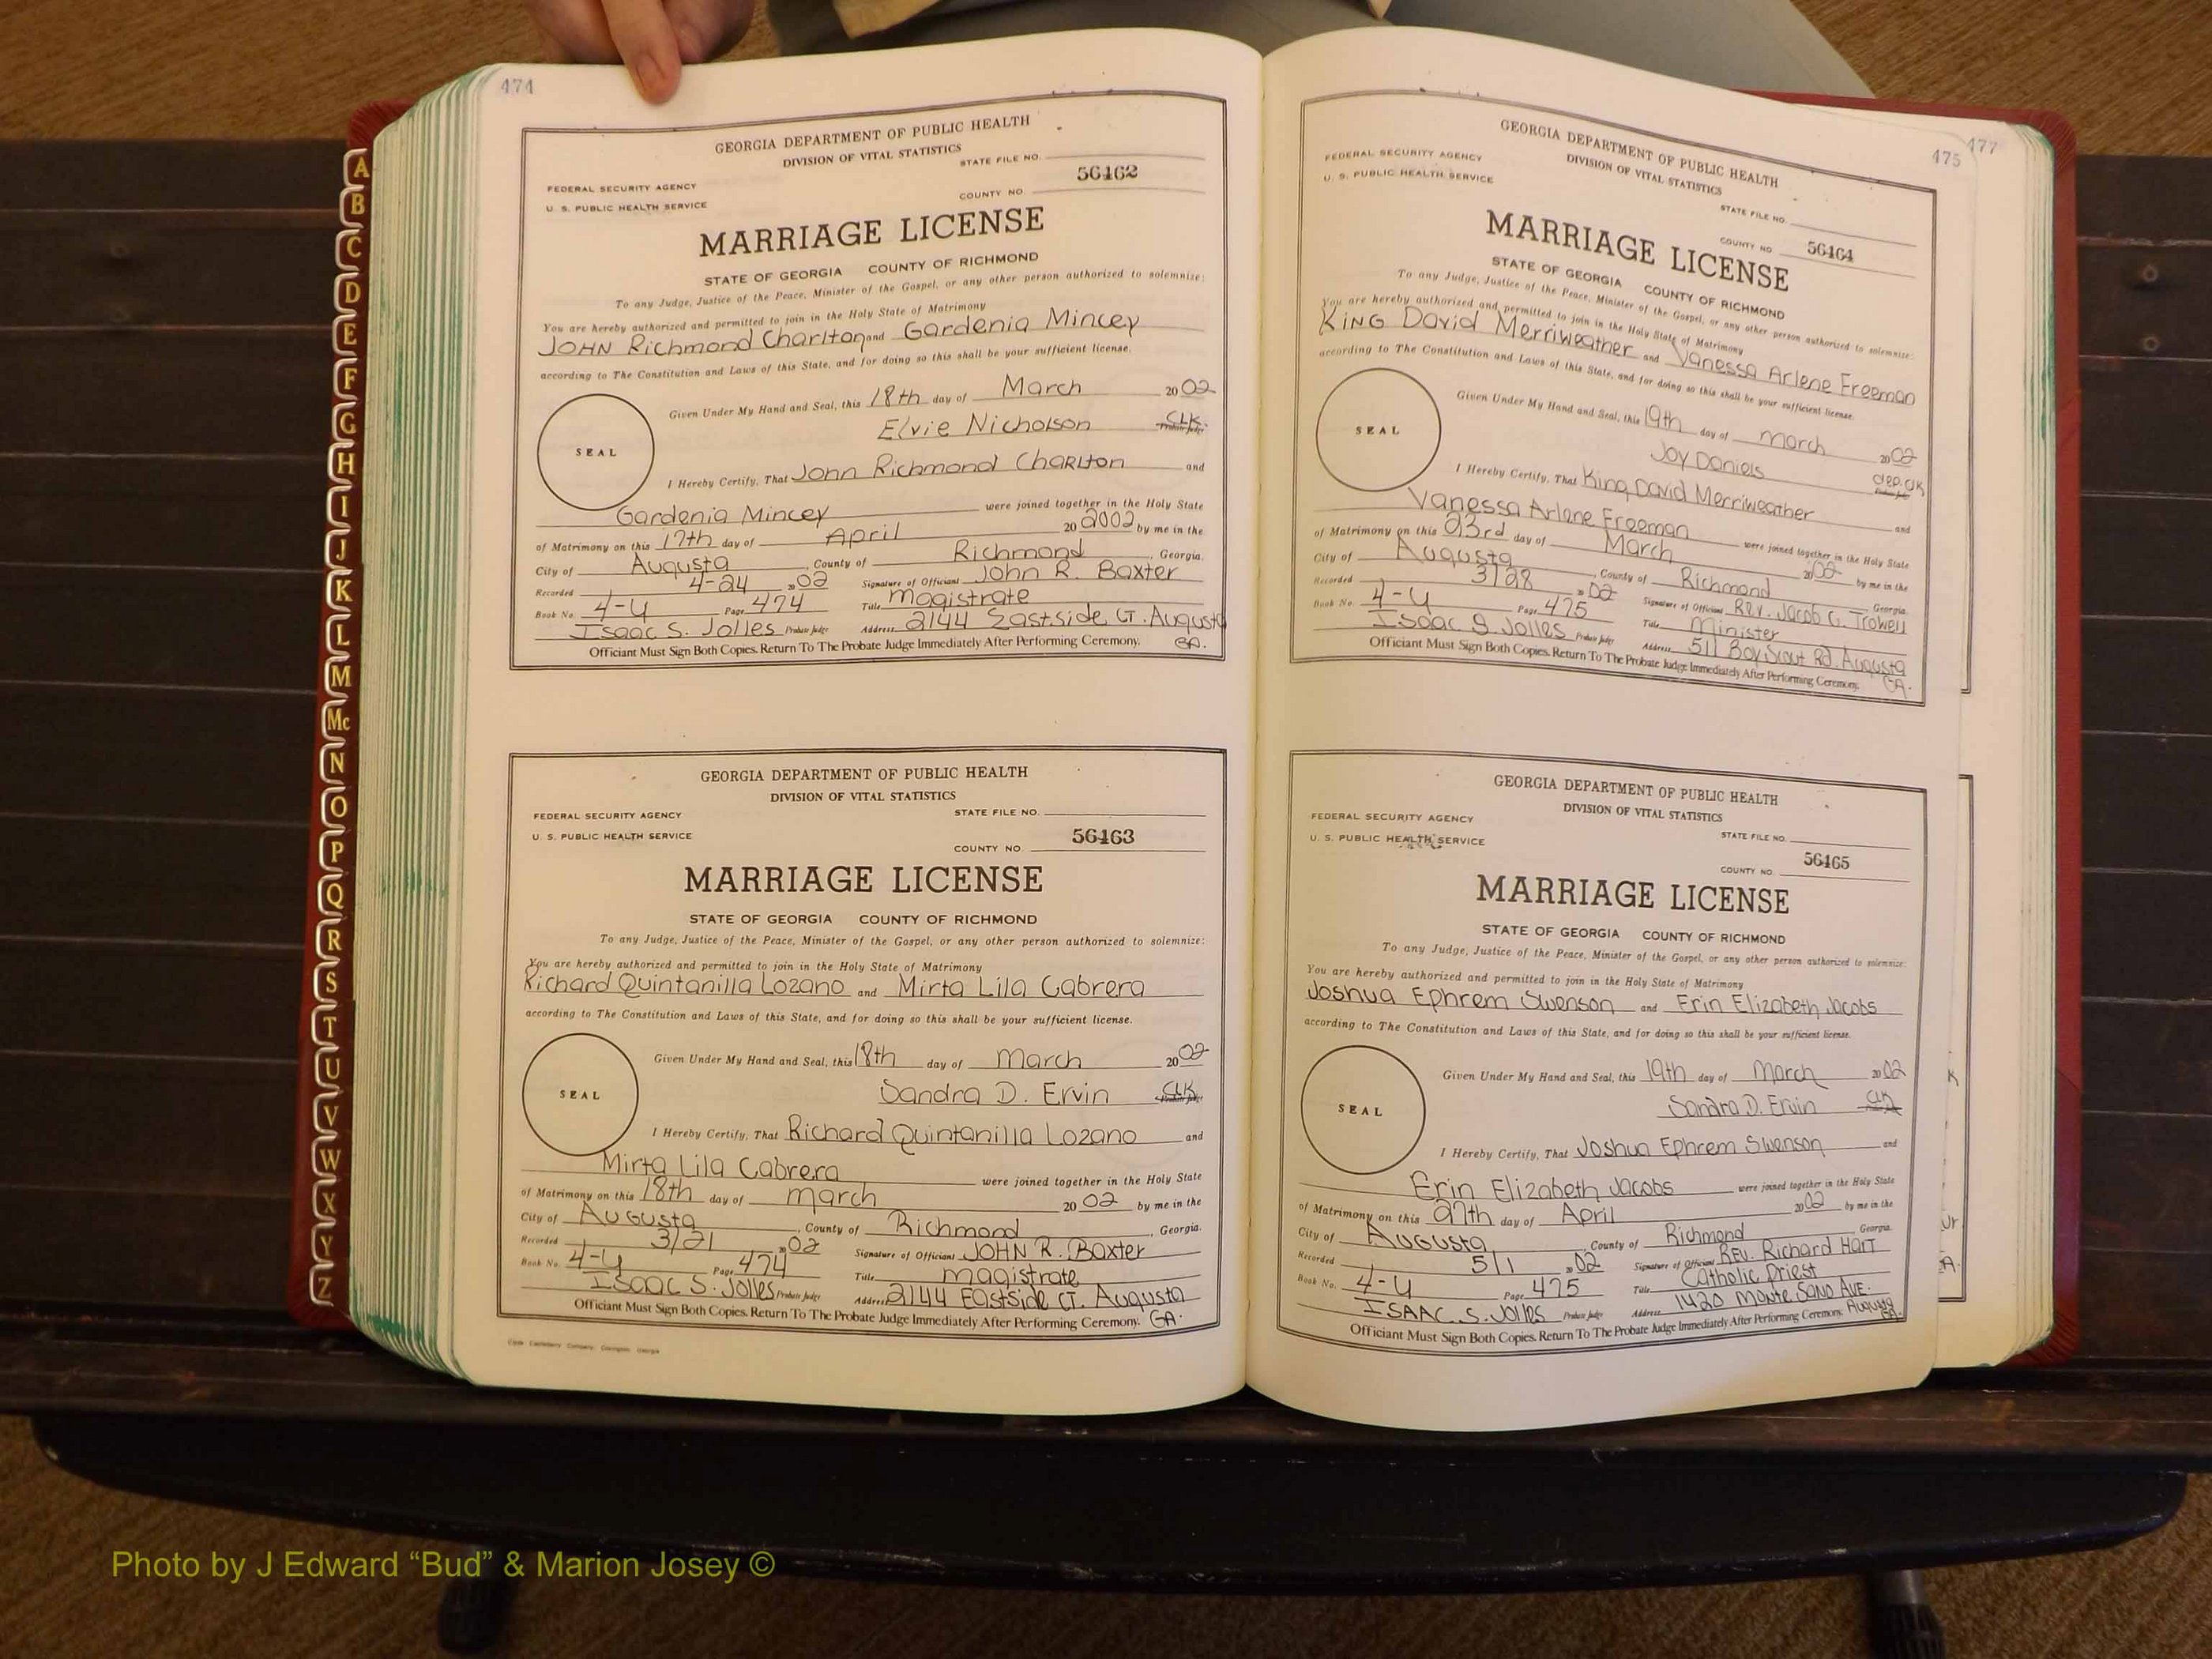 474
GEORGIA DEPARTMENT OF PUBLIC HEALTH
DIVISION OF VITAL STATISTICS
STATE FILE NO.
FEDERAL SECURITY AGENCY
56462
U. S. PUBLIC HEALTH SERVICE
COUNTY NO.
MARRIAGE LICENSE
STATE OF GEORGIA COUNTY OF RICHMOND
To any Judge, Justice of the Peace, Minister of the Gospel, or any other person authorized to solemnize:
You are hereby authorized and permitted to join in the Holy State of Matrimony
JOHN Richmond Charlton and Gardenia Mincey
according to The Constitution and Laws of this State, and for doing so this shall be your sufficient license.
Given Under My Hand and Seal, this 18th day of March 2002
Elvie Nicholson CLK. Probate Judge
SEAL
I Hereby Certify, That John Richmond Charlton and
Gardenia Mincey were joined together in the Holy State
of Matrimony on this 17th day of April 20 2002 by me in the
City of Augusta, County of Richmond, Georgia.
Recorded 4-24 2002 Signature of Official John R. Baxter
Book No. 4-U Page 474 Title Magistrate
Isaac S. Jolles Probate Judge Address 2144 Eastside CT. Augusta
GA.
Officiant Must Sign Both Copies. Return To The Probate Judge Immediately After Performing Ceremony.
GEORGIA DEPARTMENT OF PUBLIC HEALTH
DIVISION OF VITAL STATISTICS
FEDERAL SECURITY AGENCY STATE FILE NO.
U. S. PUBLIC HEALTH SERVICE 56463
COUNTY NO.
MARRIAGE LICENSE
STATE OF GEORGIA COUNTY OF RICHMOND
To any Judge, Justice of the Peace, Minister of the Gospel, or any other person authorized to solemnize:
You are hereby authorized and permitted to join in the Holy State of Matrimony
Richard Quintanilla Lozano and Mirta Lila Cabrera
according to The Constitution and Laws of this State, and for doing so this shall be your sufficient license.
Given Under My Hand and Seal, this 18th day of March 2002
Sandra D. Ervin CLK Probate Judge
SEAL
I Hereby Certify, That Richard Quintanilla Lozano and
Mirta Lila Cabrera were joined together in the Holy State
of Matrimony on this 18th day of March 2002 by me in the
City of Augusta, County of Richmond, Georgia.
Recorded 3/21 2002 Signature of Official JOHN R. Baxter
Book No. 4-U Page 474 Title Magistrate
ISAAC S. Jolles Probate Judge Address 2144 Eastside CT. Augusta
GA.
Officiant Must Sign Both Copies. Return To The Probate Judge Immediately After Performing Ceremony.
475
477
GEORGIA DEPARTMENT OF PUBLIC HEALTH
DIVISION OF VITAL STATISTICS
FEDERAL SECURITY AGENCY
U. S. PUBLIC HEALTH SERVICE
STATE FILE NO.
COUNTY NO 56464
MARRIAGE LICENSE
STATE OF GEORGIA COUNTY OF RICHMOND
To any Judge, Justice of the Peace, Minister of the Gospel, or any other person authorized to solemnize:
You are hereby authorized and permitted to join in the Holy State of Matrimony
KING David Merriweather and Vanessa Arlene Freeman
according to The Constitution and Laws of this State, and for doing so this shall be your sufficient license.
Given Under My Hand and Seal, this 19th day of March 2002
Joy Daniels dep. clk Probate Judge
SEAL
I Hereby Certify, That King David Merriweather and
Vanessa Arlene Freeman were joined together in the Holy State
of Matrimony on this 23rd day of March 2002 by me in the
City of Augusta, County of Richmond Georgia.
Recorded 3/28 2002 Signature of Official Rev. Jacob G. Trowell
Book No. 4-U Page 475 Title Minister
Isaac S. Jolles Probate Judge Address 511 Boy Scout Rd. Augusta
GA.
Officiant Must Sign Both Copies. Return To The Probate Judge Immediately After Performing Ceremony.
GEORGIA DEPARTMENT OF PUBLIC HEALTH
DIVISION OF VITAL STATISTICS
FEDERAL SECURITY AGENCY
U. S. PUBLIC HEALTH SERVICE
STATE FILE NO.
COUNTY NO. 56465
MARRIAGE LICENSE
STATE OF GEORGIA COUNTY OF RICHMOND
To any Judge, Justice of the Peace, Minister of the Gospel, or any other person authorized to solemnize:
You are hereby authorized and permitted to join in the Holy State of Matrimony
Joshua Ephrem Swenson and Erin Elizabeth Jacobs
according to The Constitution and Laws of this State, and for doing so this shall be your sufficient license.
Given Under My Hand and Seal, this 19th day of March 2002
Sandra D. Ervin CLK
SEAL
I Hereby Certify, That Joshua Ephrem Swenson and
Erin Elizabeth Jacobs were joined together in the Holy State
of Matrimony on this 27th day of April 2002 by me in the
City of Augusta County of Richmond Georgia.
Recorded 5/1 2002 Signature of Official REV. Richard HART
Book No. 4-U Page 475 Title Catholic Priest
ISAAC S. Jolles Probate Judge Address 1420 Monte Sano AVE. Augusta
GA.
Officiant Must Sign Both Copies. Return To The Probate Judge Immediately After Performing Ceremony.
A
B
C
D
E
F
G
H
I
J
K
L
M
Mc
N
O
P
Q
R
S
T
U
V
W
X
Y
Z
Photo by J Edward “Bud” & Marion Josey ©